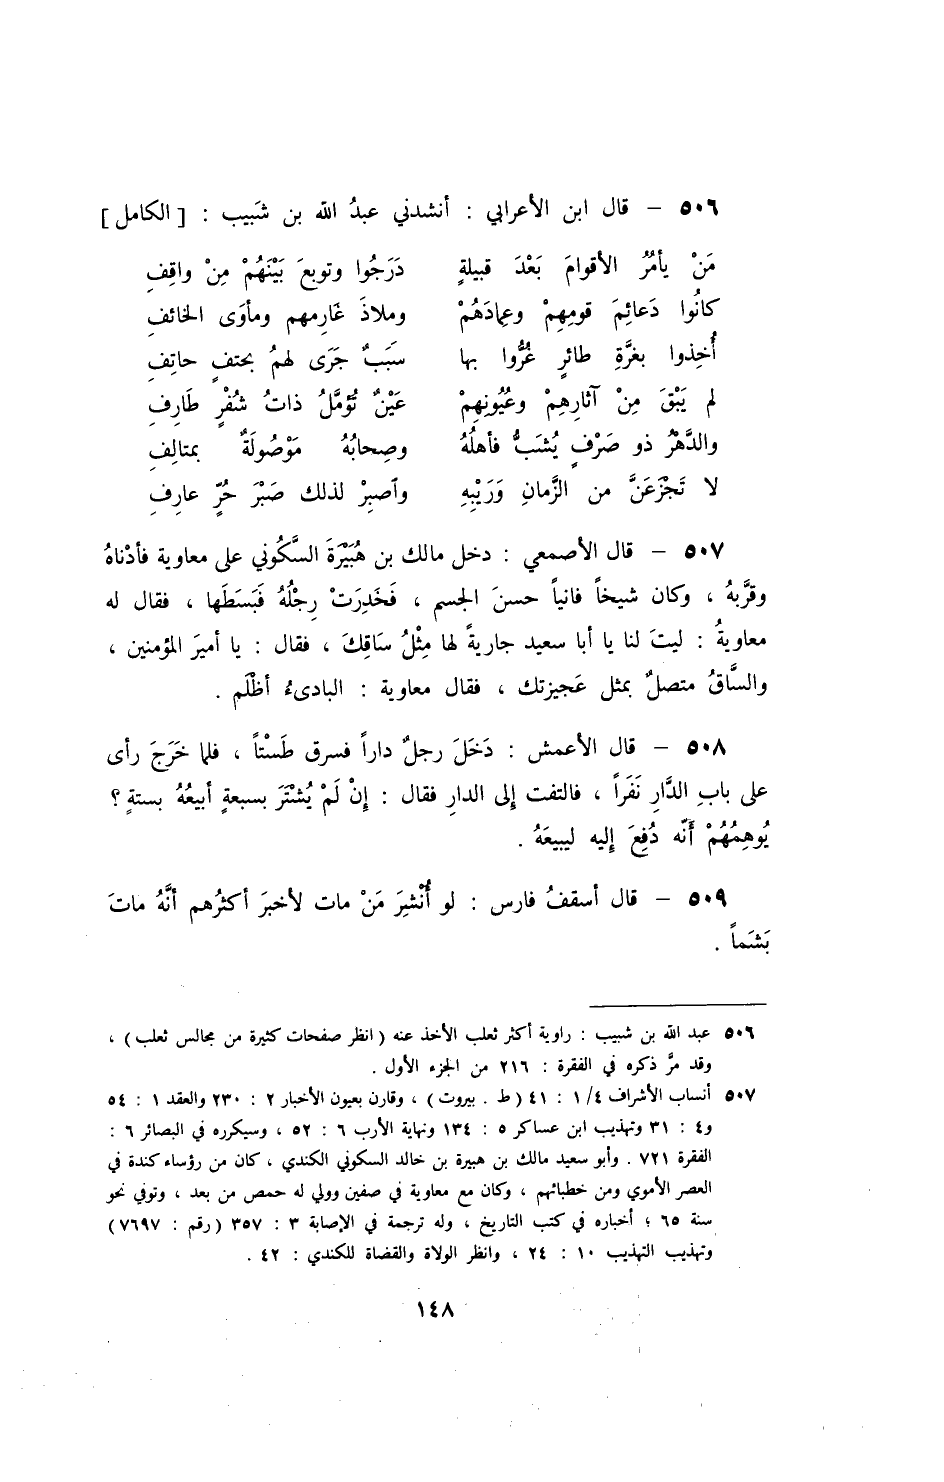 ٥٠٦ – قال ابن الأعرابي : أنشدني عبدُ الله بن شَبيب : [ الكامل ]
مَنْ يأمُرُ الأقوامَ بَعْدَ قبيلةٍ دَرَجُوا وتوبعَ بَيْنَهُمْ مِنْ واقِفِ
كانُوا دَعائِمَ قومِهِمْ وعِمادَهُمْ وملاذَ غَارِمهم ومأوَى الخائف
أُخِذوا بغرَّةِ طائرٍ غُرُّوا بها سَبَبٌ جَرَى لهمُ بحتفٍ حاتِفِ
لم يَبْقَ مِنْ آثارِهِمْ وعُيُونِهِمْ عَيْنٌ تُؤمَّلُ ذاتُ شُفْرٍ طَارِفِ
والدَّهْرُ ذو صَرْفٍ يُشَبُّ فأهلُهُ وصِحابُهُ مَوْصُولَةٌ بمتالِفِ
لا تَجْزَعَنَّ من الزَّمانِ وَرَيْبِهِ وٱصبِرْ لذلك صَبْرَ حُرٍّ عارِفِ
٥٠٧ – قال الأصمعي : دخل مالك بن هُبَيْرَةَ السَّكُوني على معاوية فأدْناهُ
وقرَّبهُ ، وكان شيخاً فانياً حسنَ الجسم ، فَخَدِرَتْ رِجْلُهُ فَبَسَطَها ، فقال له
معاويةُ : ليتَ لنا يا أبا سعيد جاريةً لها مِثْلُ سَاقِكَ ، فقال : يا أميرَ المؤمنين ،
والسَّاقُ متصلٌ بمثل عَجيزتك ، فقال معاوية : البادىءُ أظْلَم .
٥٠٨ – قال الأعمش : دَخَلَ رجلٌ داراً فسرق طَسْتاً ، فلما خَرَجَ رأى
على بابِ الدَّارِ نَفَراً ، فالتفت إلى الدارِ فقال : إِنْ لَمْ يُشْتَرَ بسبعةٍ أبيعُهُ بستةٍ ؟
يُوهِمُهُمْ أَنّه دُفِعَ إليه ليبيعَهُ .
٥٠٩ – قال أسقفُ فارس : لو أُنْشِرَ مَنْ مات لأخبرَ أكثرُهم أنَّهُ ماتَ
بَشَماً .
٥٠٦ عبد الله بن شبيب : راوية أكثر ثعلب الأخذ عنه ( انظر صفحات كثيرة من مجالس ثعلب ) ،
وقد مرَّ ذكره في الفقرة : ٢١٦ من الجزء الأول .
٥٠٧ أنساب الأشراف ٤/ ١ : ٤١ ( ط . بيروت ) ، وقارن بعيون الأخبار ٢ : ٢٣٠ والعقد ١ : ٥٤
و٤ : ٣١ وتهذيب ابن عساكر ٥ : ١٣٤ ونهاية الأرب ٦ : ٥٢ ، وسيكرره في البصائر ٦ :
الفقرة ٧٢١ . وأبو سعيد مالك بن هبيرة بن خالد السكوني الكندي ، كان من رؤساء كندة في
العصر الأموي ومن خطبائهم ، وكان مع معاوية في صفين وولي له حمص من بعد ، وتوفي نحو
سنة ٦٥ ؛ أخباره في كتب التاريخ ، وله ترجمة في الإصابة ٣ : ٣٥٧ ( رقم : ٧٦٩٧ )
وتهذيب التهذيب ١٠ : ٢٤ ، وانظر الولاة والقضاة للكندي : ٤٢ .
١٤٨